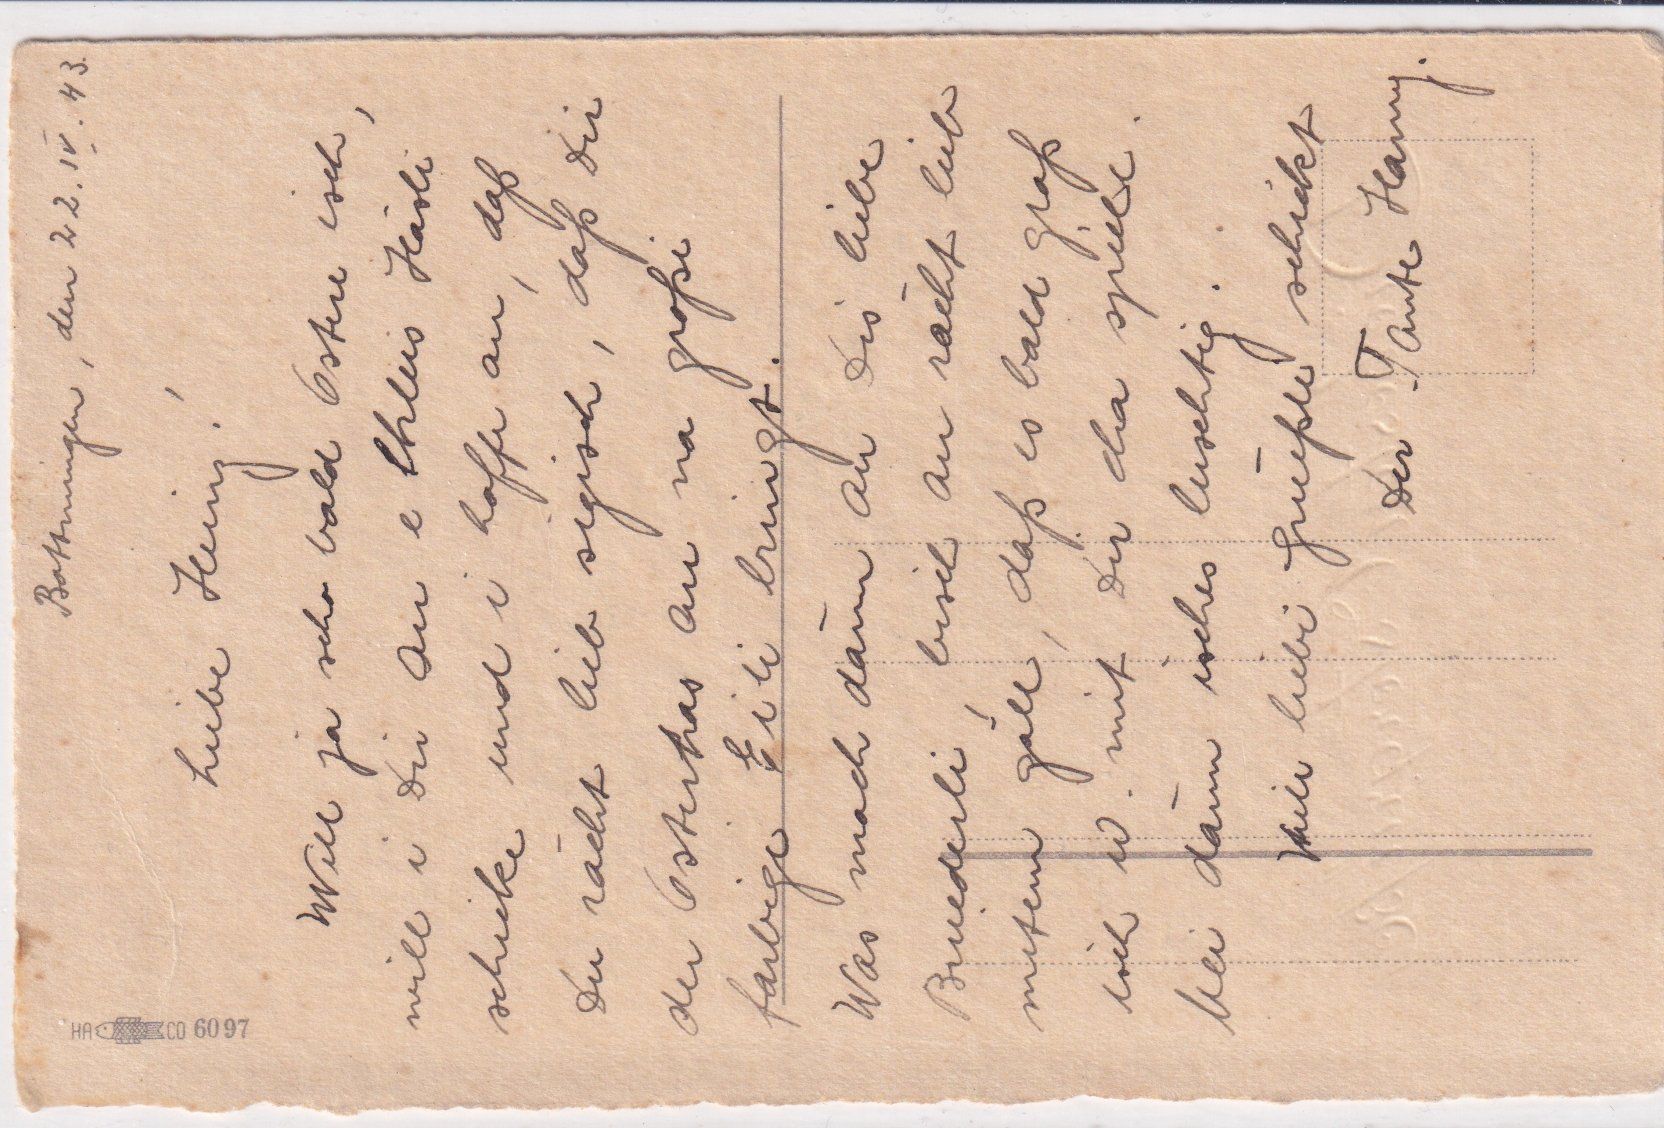 Bottmingen, den 22. IV. 43.
Liebe Heinz!
Will ja scho bald Ostere isch,
will i Dir au e khleis Häsli
schicke und i hoffe au, daß
Du rächt lieb sigisch, daß Dir
der Osterhas au na großi
farbige Eili bringt.
Was mach dänn au Dis liebe
Brüederli, bisch au rächt lieb
mitem gäll, daß es bald groß
isch u. mit Dir cha spiele.
Wei dänn isches luschtig.
Vieli liebi Grüeßli schickt
Der Tante Hanny.
HACO 6097